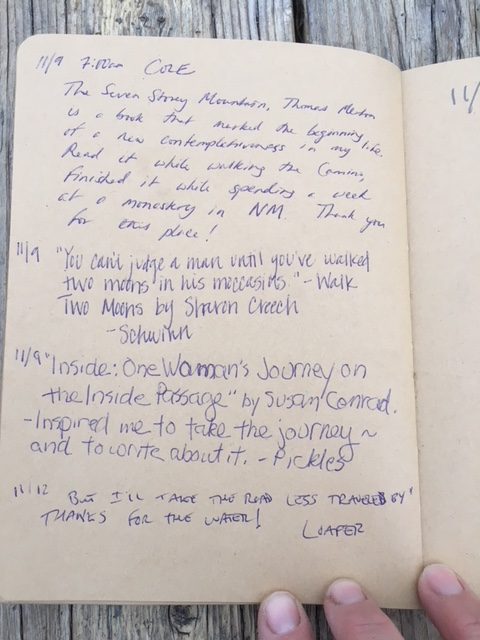 11/9 7:00am COLE
The Seven Storey Mountain, Thomas Merton
is a book that marked the beginning
of a new contemplativeness in my life.
Read it while walking the Camino,
finished it while spending a week
at a monastery in NM. Thank you
for this place!
11/9 "You can't judge a man until you've walked
two moons in his moccasins." - Walk
Two Moons by Sharon Creech
- Schwinn
11/9 "Inside: One Woman's Journey on
the Inside Passage" by Susan Conrad.
- Inspired me to take the journey ~
and to write about it. - Pickles
11/12 BUT I'LL TAKE THE ROAD LESS TRAVELED BY"
THANKS FOR THE WATER!
LOAFER
11/